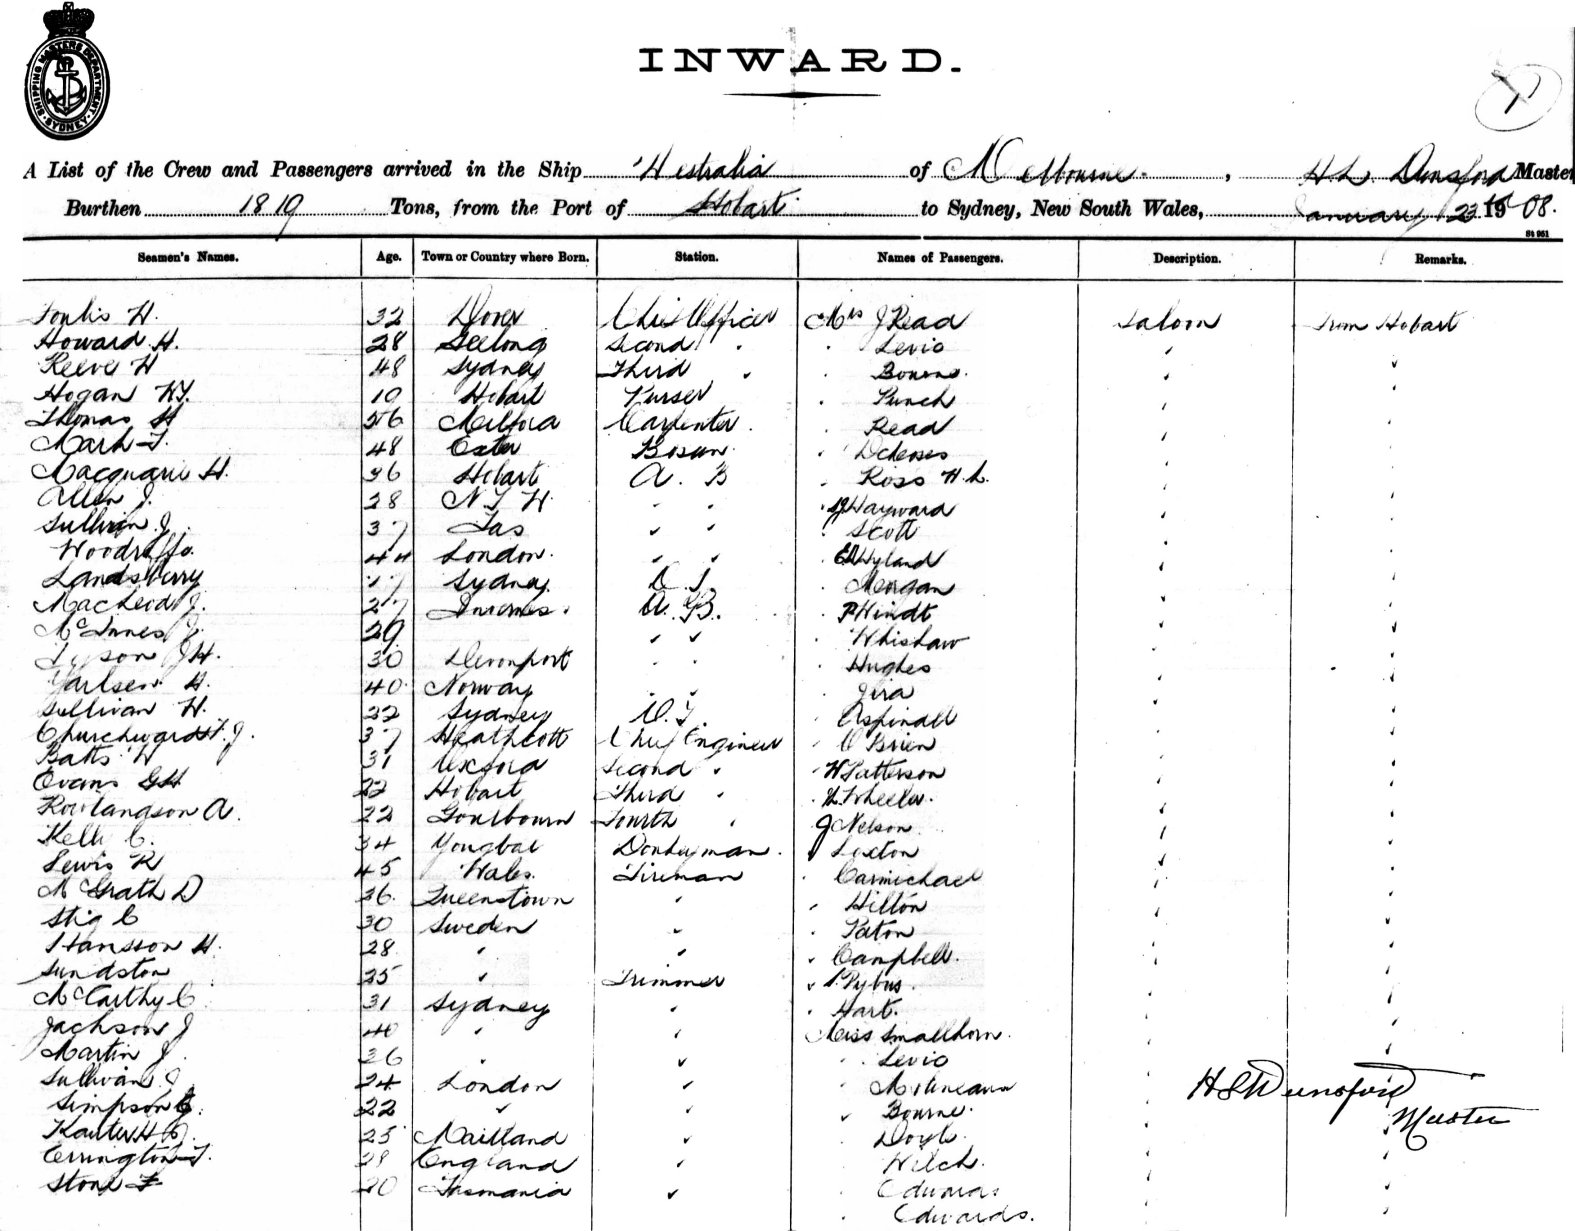 SHIPPING MASTERS DEPARTMENT
SYDNEY
INWARD.
A List of the Crew and Passengers arrived in the Ship Westralia of Melbourne, H L Dunsford Master
Burthen 1819 Tons, from the Port of Hobart to Sydney, New South Wales, January 23rd 1908.
St 951
Seamen's Names. Age. Town or Country where Born. Station. Names of Passengers. Description. Remarks.
H. 32 Dover Chief Officer Mrs J Read Saloon From Hobart
Howard H. 28 Geelong Second " " Levis " "
Reeve W 48 Sydney Third " " Bourne. " "
Hogan 19 Hobart Purser " Punch " "
Thomas H 56 Milford Carpenter. " Read " "
Mark T. 48 Exeter Bosun. " " "
Macquarie H. 36 Hobart A. B " Ross H. L. " "
Allen J. 28 N S W " " " Hayward " "
Sullivan J. 37 Tas " " " Scott " "
44 London. " " " Hyland " "
Landsberry 17 Sydney. O. S. " Morgan " "
MacLeod J. 27 A. B. " Hindt " "
McInnes J. 29 " " " Whishaw " "
Tyson J H. 30 Devonport " " " Hughes " "
Yarlsen H. 40 Norway " " " " "
Sullivan W. 22 Sydney O. S. " Aspinall " "
Churchward F. J. 37 Heathcott Chief Engineer " O'Brien " "
Batts W 31 Oxford Second " " W Patterson " "
Evans G H 22 Hobart Third " " Wheeler. " "
Rowlandson A. 22 Goulbourn Fourth " J Nelson " "
Kelly C. 34 Donkeyman. " Sexton " "
Lewis R 45 Wales. Fireman " Carmichael " "
McGrath D 36. Queenstown " " Hilton " "
Stig C 30 Sweden " " Paton " "
Hansson H. 28 " " " Campbell. " "
Sundston 25 " Trimmer " Pybus. " "
McCarthy C. 31 Sydney " " Hart. " "
Jackson J 40 " " Miss Smallhorn. " "
Martin J. 36 " " " Levis " "
Sullivan J 24 London " " Molineaux H L Dunsford
Simpson G. 22 " " " Bourne. Master
25 Maitland " " Doyle. "
Errington T. 28 England " " Welch. "
Stone F 20 Tasmania " " Edwards "
" Edwards. "